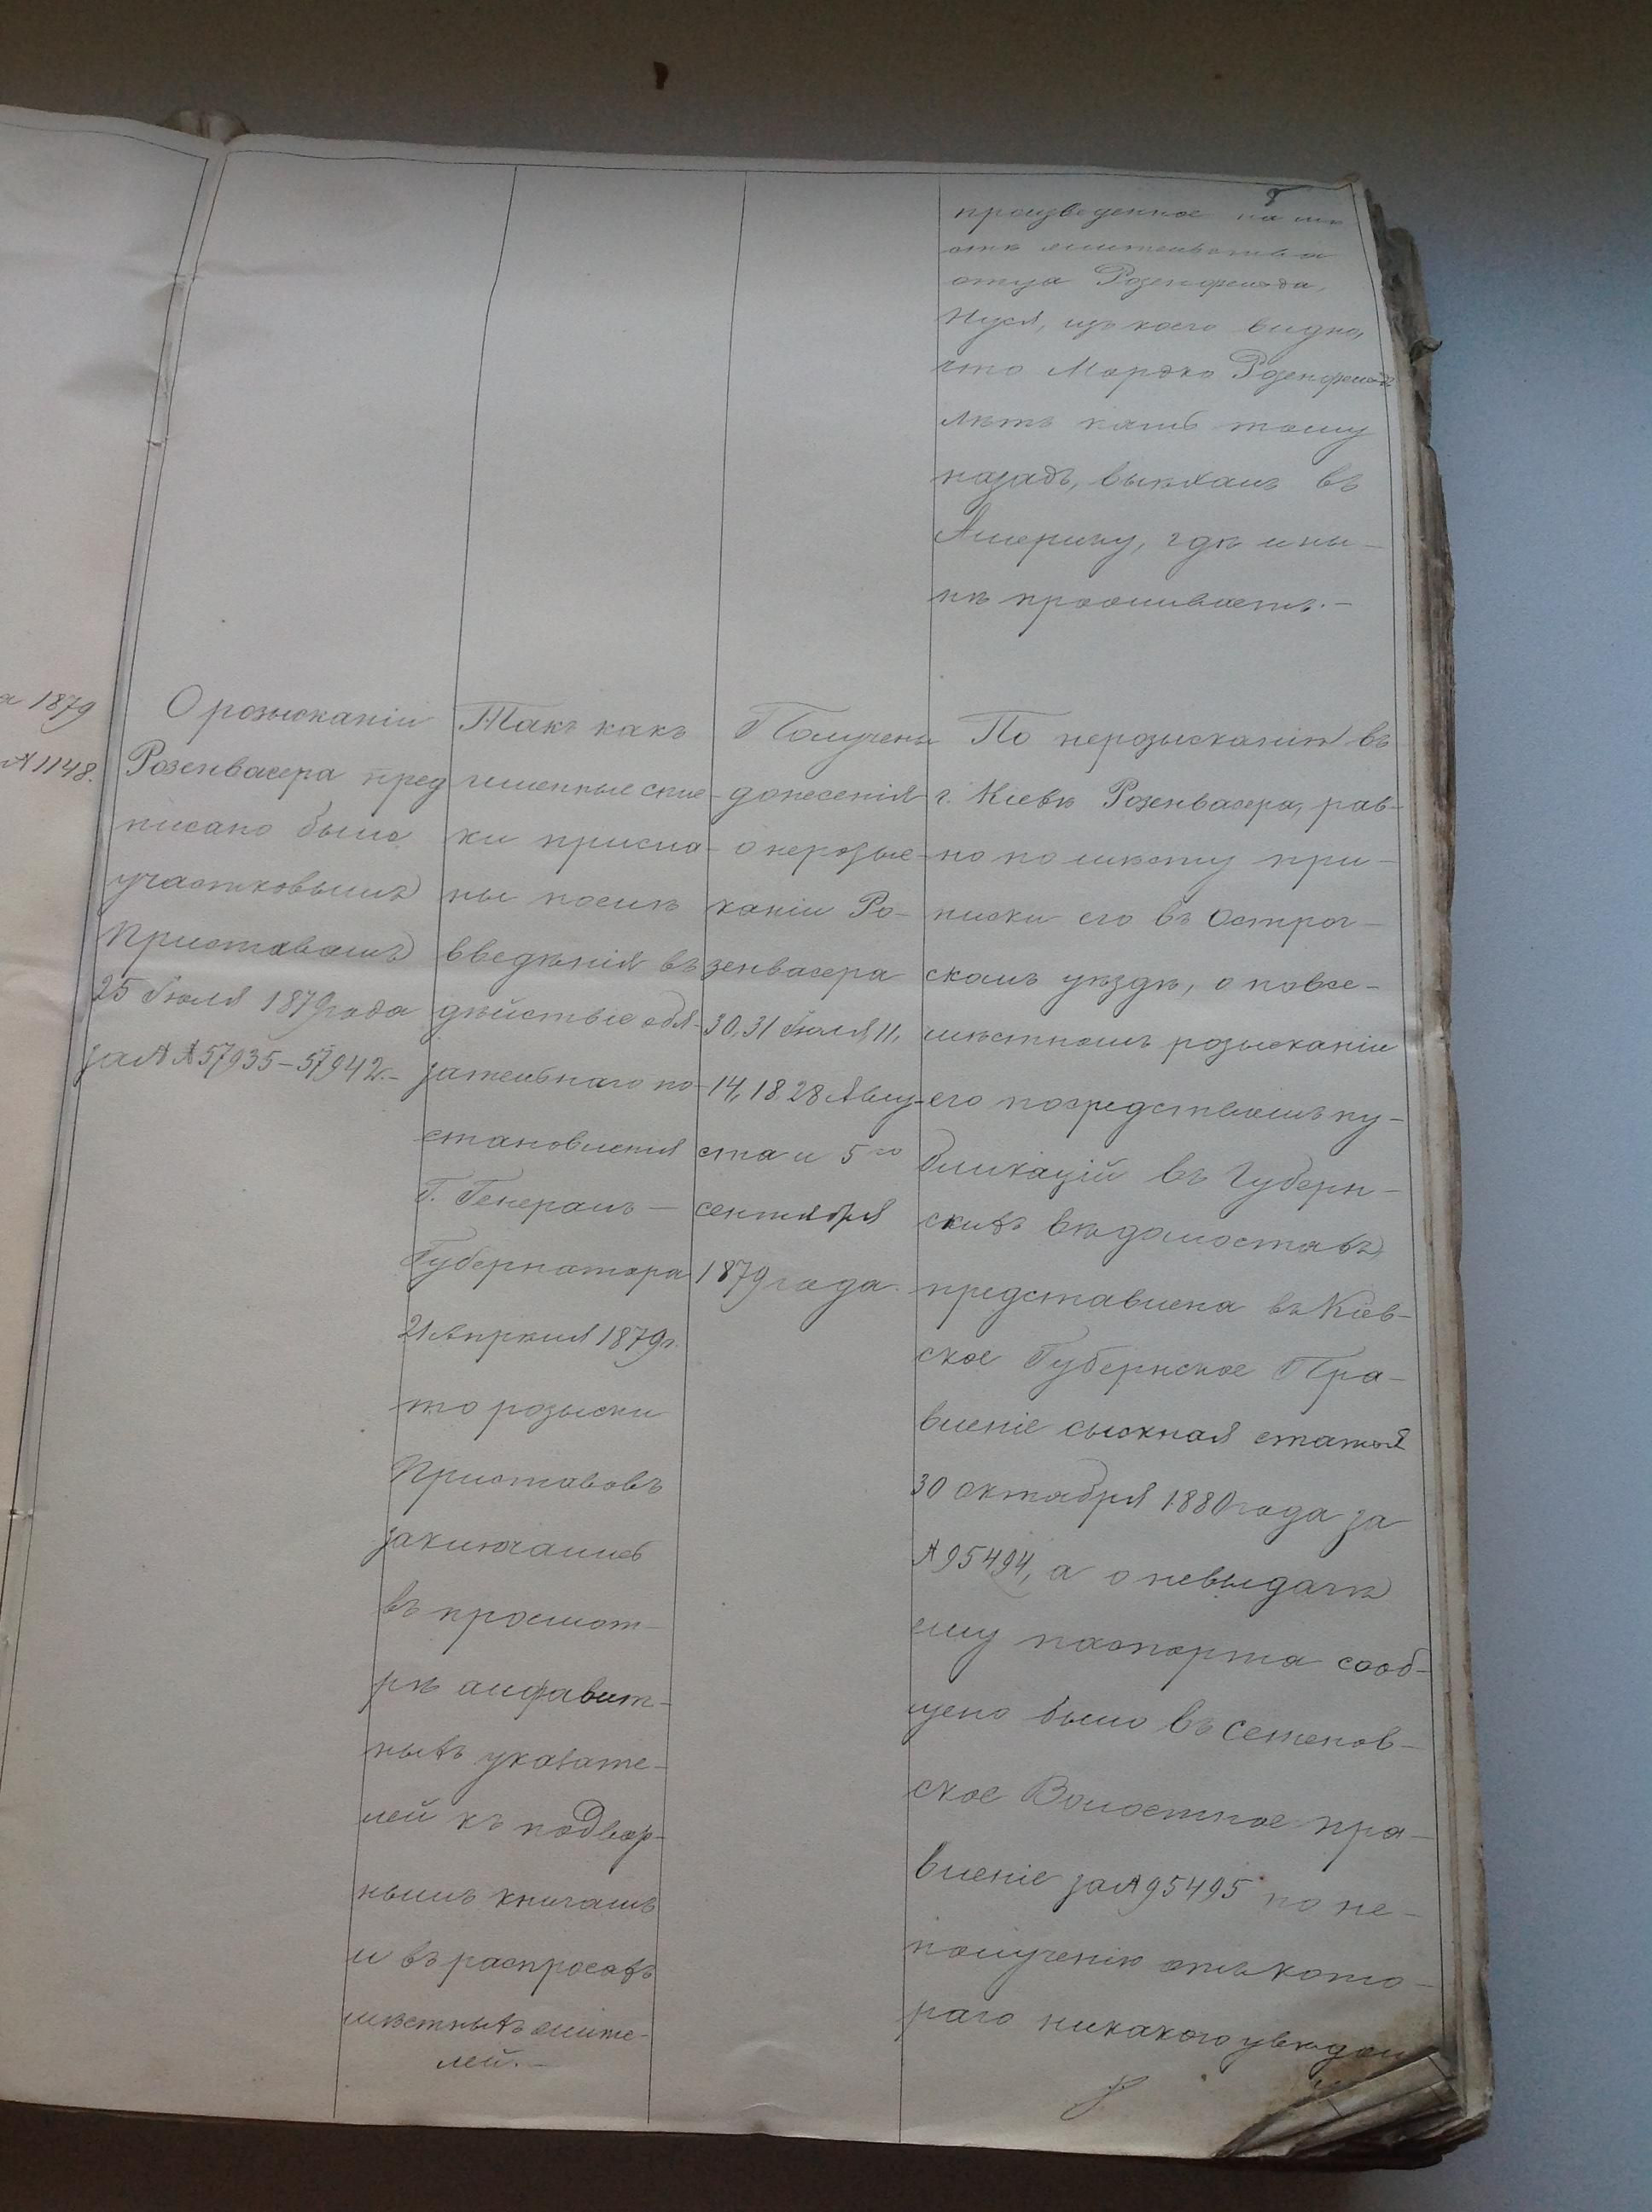 8
произведенное на мѣ-
стѣ жительства
отца Розенфельда,
Нуся, изъ коего видно,
что Мордко Розенфельдъ
лѣтъ пять тому
назадъ, выѣхалъ въ
Америку, гдѣ и ны-
нѣ проживаетъ.-
а 1879
№ 1148.
О розысканіи
Розенвасера пред
писано было
участковымъ
Приставамъ
25 Іюля 1879 года
за №№ 57935-57942.-
Такъ какъ
именные спис-
ки присла-
ны послѣ
введенія въ
дѣйствіе обя-
зательнаго по-
становленія
Г. Генералъ-
Губернатора
21 Апрѣля 1879 г.
то розыски
Приставовъ
заключались
въ просмот-
рѣ алфавит-
ныхъ указате-
лей къ подвор-
нымъ книгамъ
и въ распросахъ
мѣстныхъ жите-
лей.-
Получены
донесенія
о нерозыс-
каніи Ро-
зенвасера
30, 31 Іюля, 11,
14, 18, 28 Авгу-
ста и 5го
сентября
1879 года.
По нерозысканію въ
г. Кіевѣ Розенвасера, рав-
но по мѣсту при-
писки его въ Острог-
скомъ уѣздѣ, о повсе-
мѣстномъ розысканіи
его посредствомъ пу-
бликацій въ Губерн-
скихъ вѣдомостяхъ,
представлена въ Кіев-
ское Губернское Пра-
вленіе сыскная статья
30 октября 1880 года за
№ 95494, а о невыдачѣ
ему паспорта сооб-
щено было въ Семенов-
ское Волостное пра-
вленіе за № 95495 по не-
полученію отъ кото-
раго никакого увѣдом